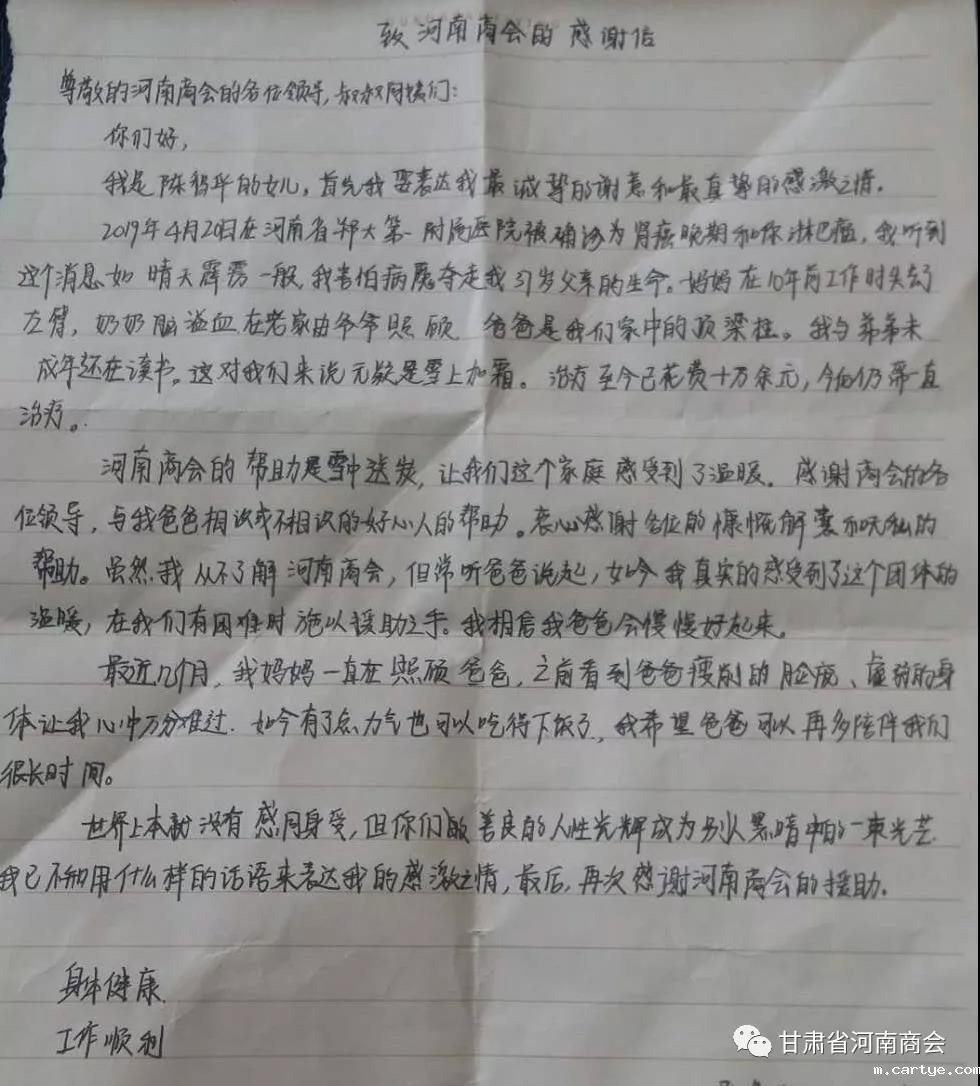 致河南商会的感谢信
尊敬的河南商会的各位领导,叔叔阿姨们:
你们好,
我是陈 华的女儿,首先我要表达我最诚挚的谢意和最真挚的感激之情.
2019年4月20日在河南省郑大第一附属医院被确诊为肾癌晚期和 淋巴癌,我听到
这个消息如晴天霹雳一般,我害怕病魔夺走我37岁父亲的生命。妈妈在10年前工作时失去了
左臂,奶奶脑溢血在老家由爷爷照顾 爸爸是我们家中的顶梁柱。我与弟弟未
成年还在读书。这对我们来说无疑是雪上加霜。治疗至今已花费十万余元,今后仍需一直
治疗。
河南商会的帮助是雪中送炭,让我们这个家庭感受到了温暖.感谢商会的各
位领导,与我爸爸相识或不相识的好心人的帮助。衷心感谢各位的慷慨解囊和无私的
帮助。虽然我从不了解河南商会,但常听爸爸说起,如今我真实的感受到了这个团体的
温暖,在我们有困难时施以援助之手。我相信我爸爸会慢慢好起来.
最近几个月,我妈妈一直在照顾爸爸,之前看到爸爸瘦削的脸庞、虚弱的身
体让我心中万分难过.如今有了点力气也可以吃得下饭了,我希望爸爸可以再多陪伴我们
很长时间。
世界上本就没有感同身受,但你们的善良的人性光辉成为别人黑暗中的一束光芒.
我已不知用什么样的话语来表达我的感激之情,最后,再次感谢河南商会的援助.
身体健康
工作顺利
甘肃省河南商会
m.cartye.com